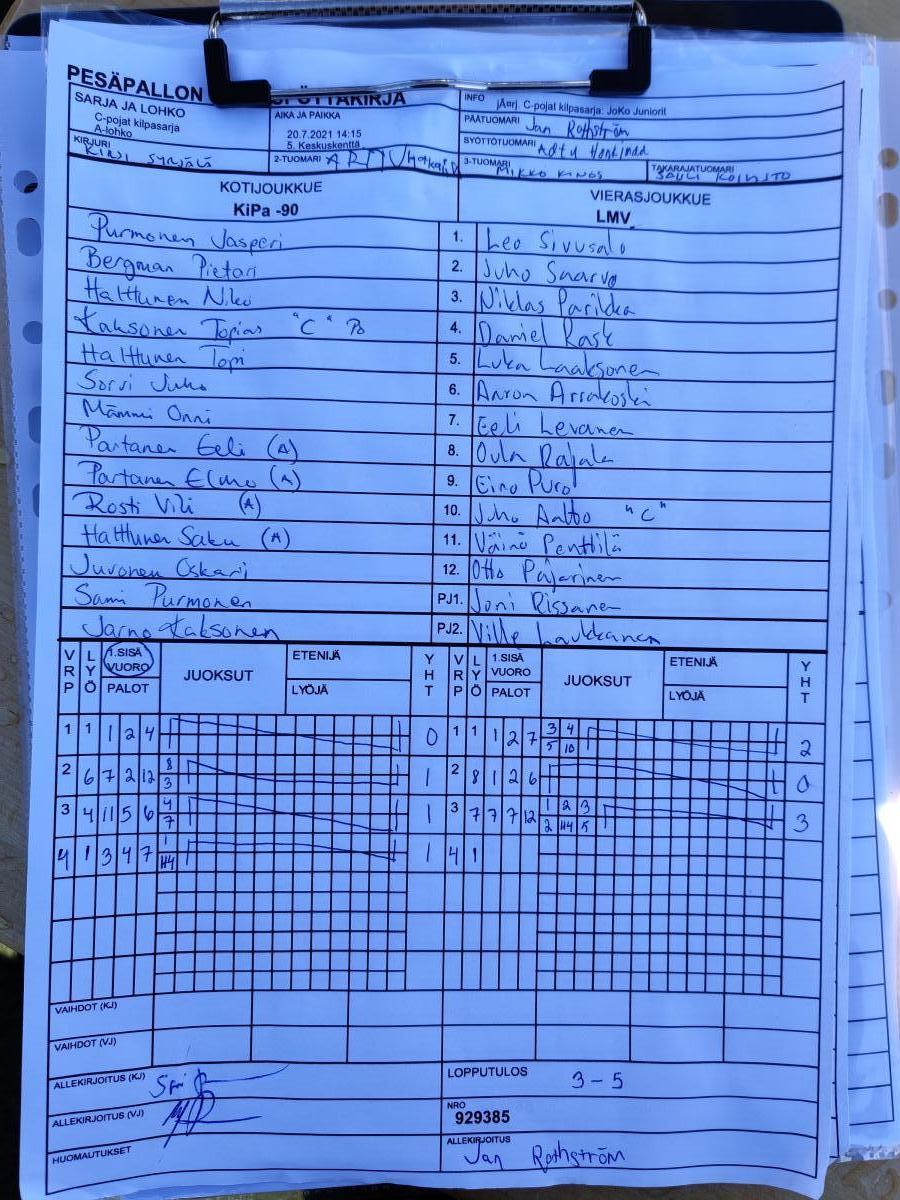 PESÄPALLON PÖYTÄKIRJA
SARJA JA LOHKO
C-pojat kilpasarja
A-lohko
AIKA JA PAIKKA
20.7.2021 14:15
5. Keskuskenttä
INFO jÄrrj. C-pojat kilpasarja: JoKo Juniorit
PÄÄTUOMARI Jan Rothström
SYÖTTÖTUOMARI
KIRJURI KIRSI
2-TUOMARI
3-TUOMARI MIKKO
TAKARAJATUOMARI SAULI KOIVISTO
KOTIJOUKKUE VIERASJOUKKUE
KiPa -90 LMV
Purmonen Jasperi 1. Leo Sivusalo
Bergman Pietari 2. Juho Saarva
Halttunen Niko 3. Niklas Parikka
Kaksonen Topias "C" 4. Daniel Rask
Halttunen Topi 5. Luka Laaksonen
Sorvi Juho 6. Aaron Arrakoski
Mämmi Onni 7. Eeli Levanen
Partanen Eeli (A) 8. Ovla Rajala
Partanen Elmo (A) 9. Eino Puro
Rosti Vili (A) 10. Juho Aalto "C"
Halttunen Saku (A) 11. Väinö Penttilä
Juvonen Oskari 12. Otto Pajarinen
Sami Purmonen PJ1. Joni Rissanen
Jarno Kaksonen PJ2. Ville Laukkanen
VRP LYÖ 1.SISÄ VUORO PALOT JUOKSUT ETENIJÄ LYÖJÄ YHT VRP LYÖ 1.SISÄ VUORO PALOT JUOKSUT ETENIJÄ LYÖJÄ YHT
1 1 1 2 4 0 1 1 1 2 7 3 4 2
5 10
2 6 7 2 12 8 1 2 8 1 2 6 0
3
3 4 11 5 6 4 1 3 7 7 7 12 1 2 3 3
7 2 H4 5
4 1 3 4 7 1 1 4 1
H4
VAIHDOT (KJ)
VAIHDOT (VJ)
ALLEKIRJOITUS (KJ)
LOPPUTULOS 3-5
ALLEKIRJOITUS (VJ)
NRO
929385
HUOMAUTUKSET
ALLEKIRJOITUS
Jan Rothström